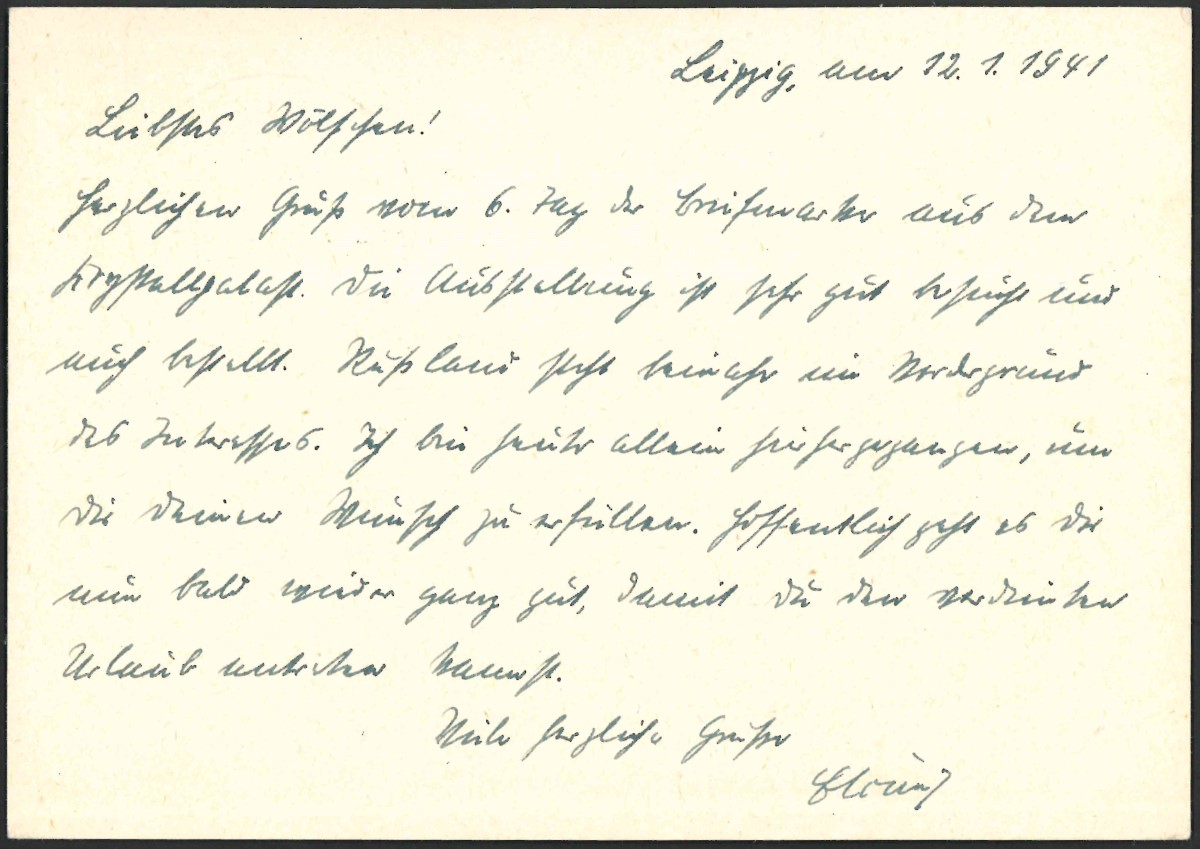 Leipzig, am 12.1.1941
Liebstes Wölfchen!
Herzlichen Gruß vom 6. Tag der Briefmarke aus dem
Krystallpalast. Die Ausstellung ist sehr gut besucht und
auch bestellt. Rußland steht beinahe im Vordergrund
des Interesses. Ich bin heute allein hierhergegangen, um
Dir Deinen Wunsch zu erfüllen. Hoffentlich geht es Dir
nun bald wieder ganz gut, damit Du den verdienten
Urlaub antreten kannst.
Viele herzliche Grüße